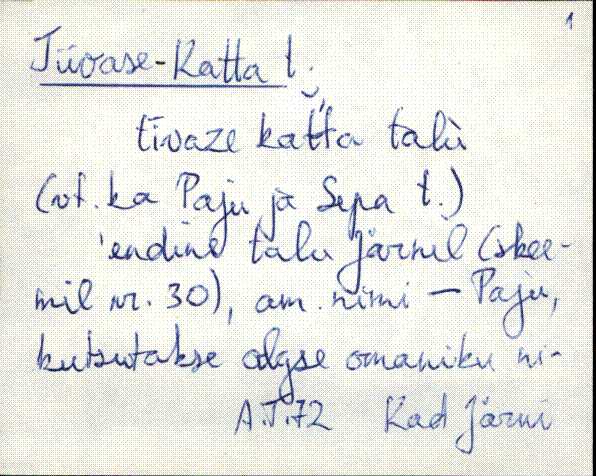 1
Tiivase-Katta t.
tīvaze kat̆'ta talù
(vt. ka Paju ja Sepa t.)
'endine talu Järnil (skee-
mil nr. 30), am. nimi – Paju,
kutsutakse algse omaniku ni-
A.T.72 Kad Järni